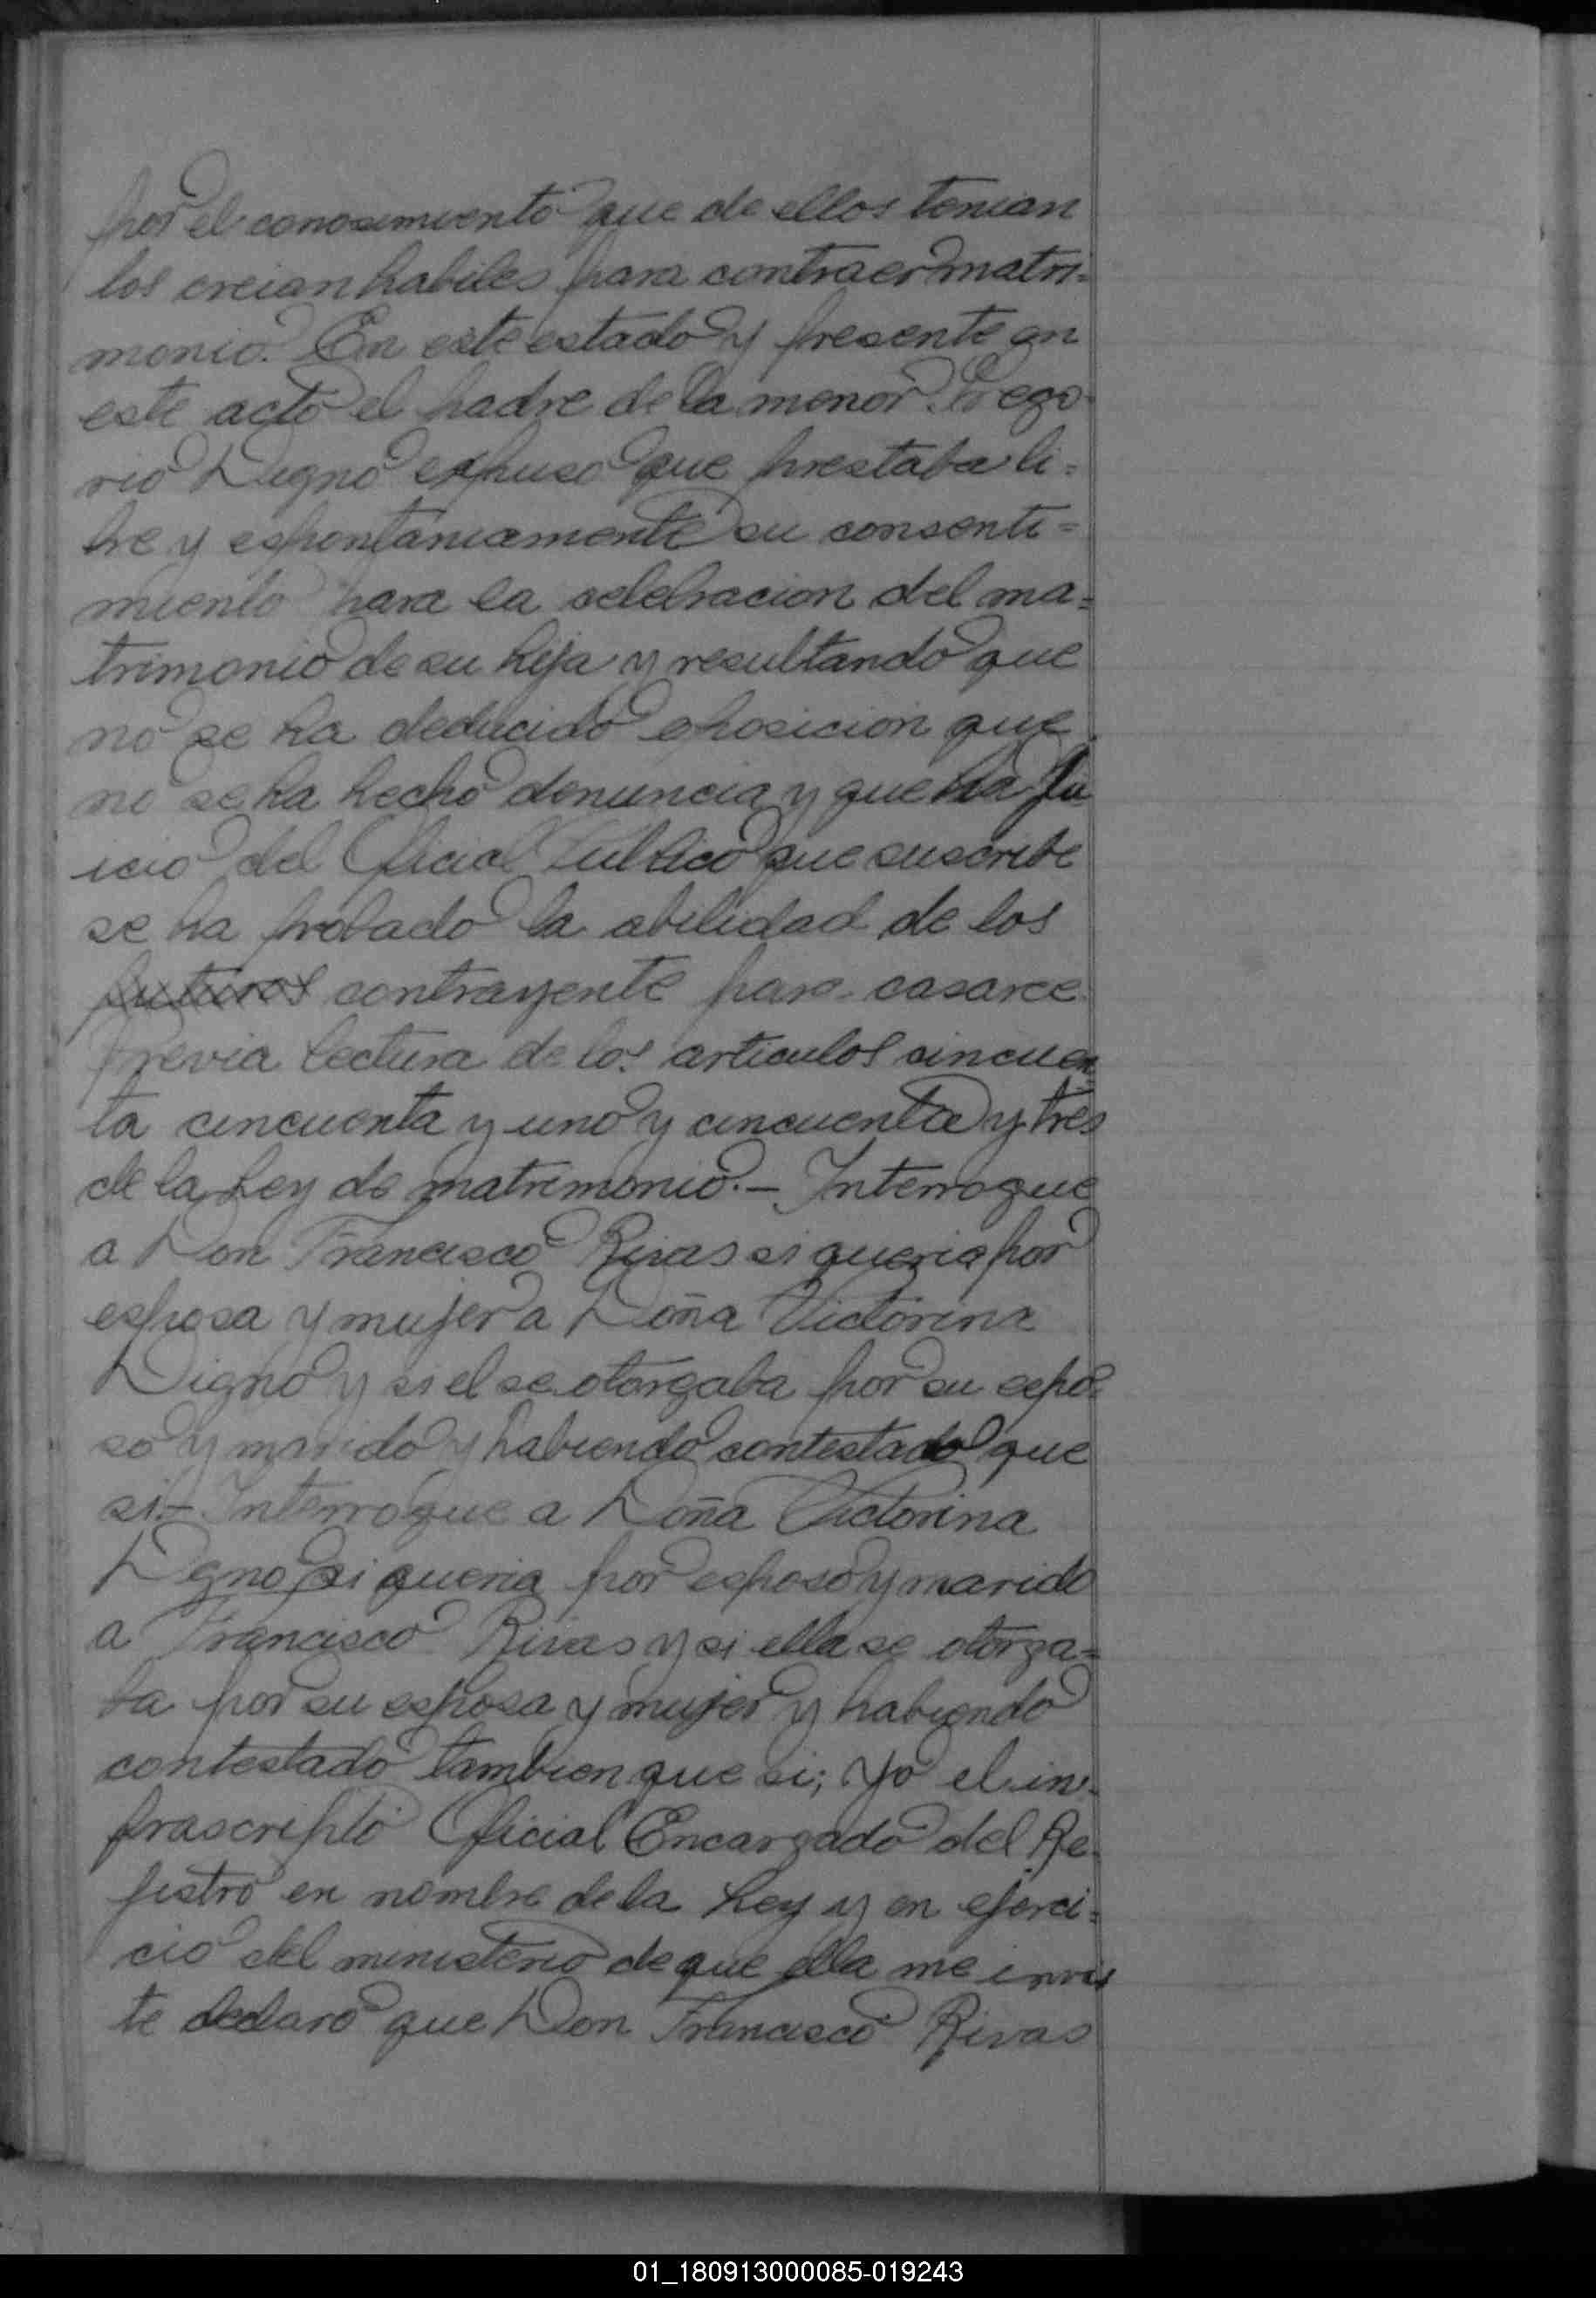 por el conosimiento que de ellos tenian
los creian habiles para contraer matri=
monio. En este estado y presente en
este acto el padre de la menor Grego-
rio Digno expuso que prestaba li=
bre y espontaniamente su consenti=
miento para la celebracion del ma=
trimonio de su hija y resultando que
no se ha deducido oposicion que
no se ha hecho denuncia y que ha Ju
icio del Oficial Publico que suscribe
se ha probado la abilidad de los
futuros contrayente para casarce
previa lectura de los articulos cincuen=
ta cincuenta y uno y cincuenta y tres
de la Ley de matrimonio.- Interrogue
a Don Francisco Rivas si queria por
esposa y mujer a Doña Victorina
Digno y si el se otorgaba por su espo=
so y marido y habiendo contestado que
si.- Interrogue a Doña Victorina
Digno si queria por esposo y marido
a Francisco Rivas y si ella se otorga=
ba por su esposa y mujer y habiendo
contestado tambien que si; Yo el in-
frascripto Oficial Encargado del Re-
jistro en nombre de la Ley y en ejerci=
cio del ministerio de que ella me invis
te declaro que Don Francisco Rivas
01_180913000085-019243